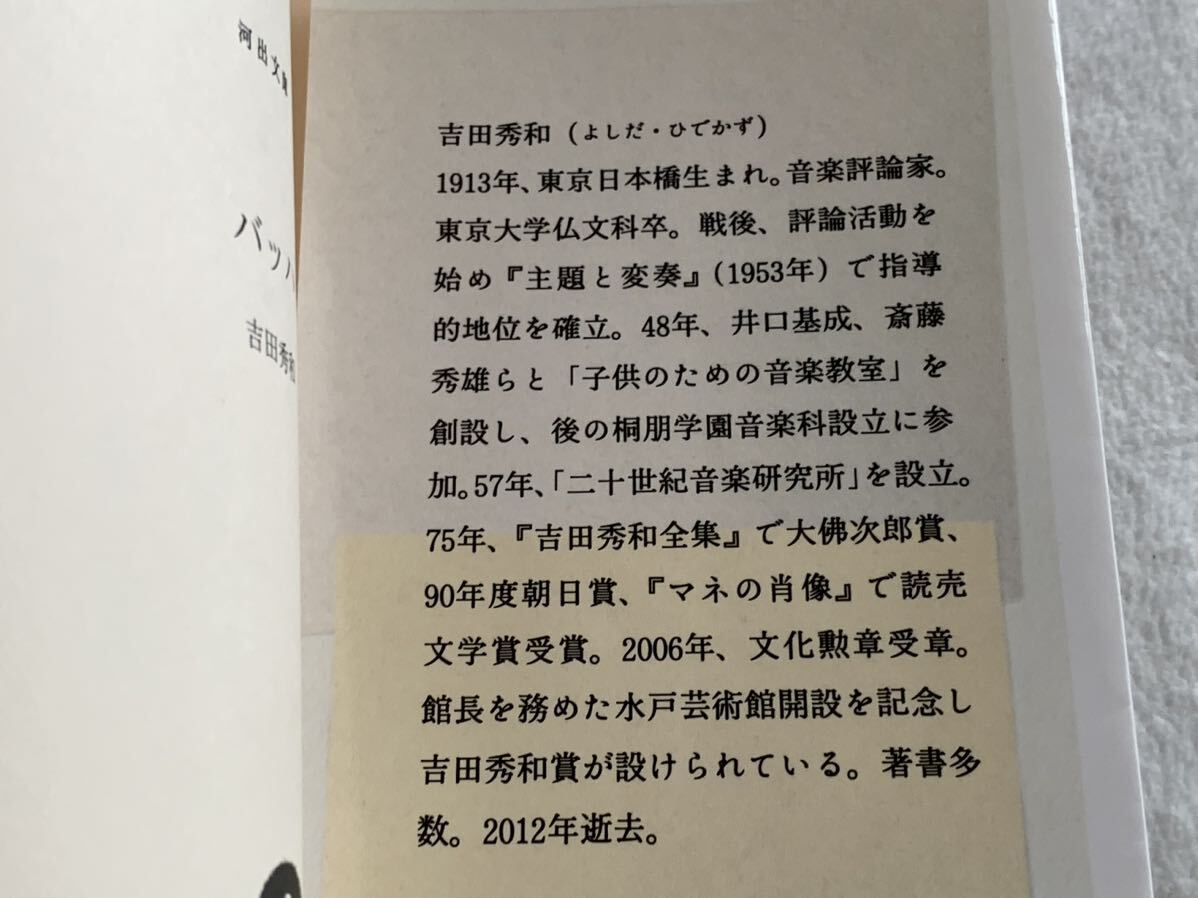 河出文
バッハ
吉田秀和
吉田秀和（よしだ・ひでかず）
1913年、東京日本橋生まれ。音楽評論家。
東京大学仏文科卒。戦後、評論活動を
始め『主題と変奏』（1953年）で指導
的地位を確立。48年、井口基成、斎藤
秀雄らと「子供のための音楽教室」を
創設し、後の桐朋学園音楽科設立に参
加。57年、「二十世紀音楽研究所」を設立。
75年、『吉田秀和全集』で大佛次郎賞、
90年度朝日賞、『マネの肖像』で読売
文学賞受賞。2006年、文化勲章受章。
館長を務めた水戸芸術館開設を記念し
吉田秀和賞が設けられている。著書多
数。2012年逝去。